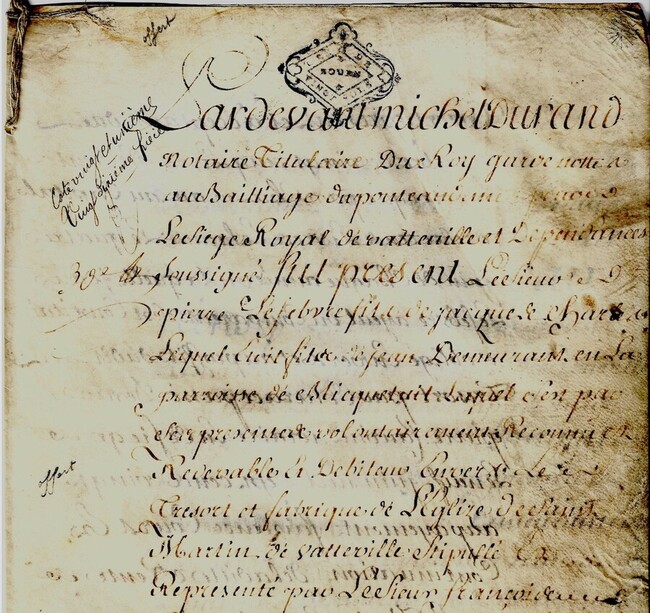 offert
DE
ROUEN
Cote vingt et unième
Vingt sixième pièce
Pardevant michel Durand
Notaire Titulaire Du Roy garde notte
au Bailliage du ponteau
Le Siege Royal de vatteville et Dependances
Soussigné fut present Le Sieur
pierre Lefebvre fils de jacque
Lequel étoit fils de jean Demeurant en La
parroisse de Lequel
ses presentes volontairement Reconnu
Redevable & Debiteur Envers Le
Tresort et fabrique de L'Eglise de Saint
offert
Martin de vatteville Stipullé
Represente par Le Sieur françois